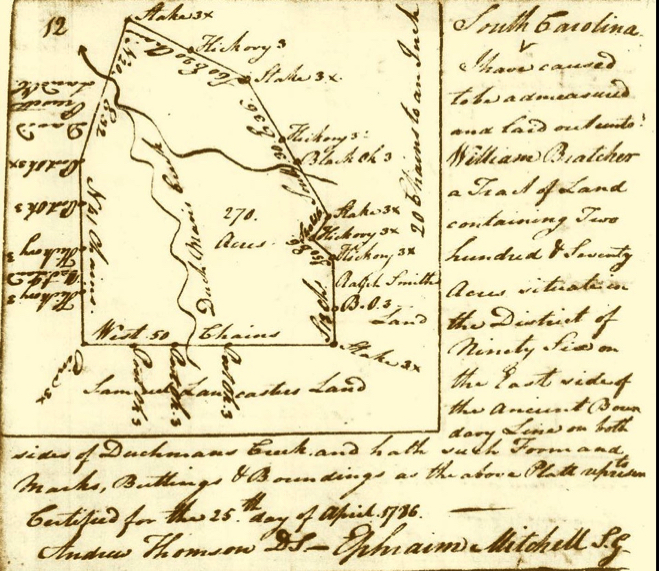 12
Stake 3x
Hickory 3
Stake 3x
Hickory 3
Black Ok 3
Stake 3x
Hickory 3x
Hickory 3x
Ralph Smith
B.O. 3
Land
Stake 3x
20 Chains to an Inch
270.
Acres
Dutchmans
West 50 Chains
Red Ok 3x
Red Ok 3
Hickory 3
Hickory 3
Pine 3x
Red Ok 3
Red Ok 3
Red Ok 3
Samuel Lancasters Land
South Carolina
I have caused
to be admeasured
and laid out unto
William Bratcher
a Tract of Land
containing Two
hundred & Seventy
Acres situate in
the District of
Ninety Six on
the East side of
the ancient Boun
dary Line on both
sides of Duchmans Creek and hath such Form and
Marks, Buttings & Boundings as the above Platt represents
Certified for the 25th day of April 1786.
Andrew Thomson DS - Ephraim Mitchell S.G.